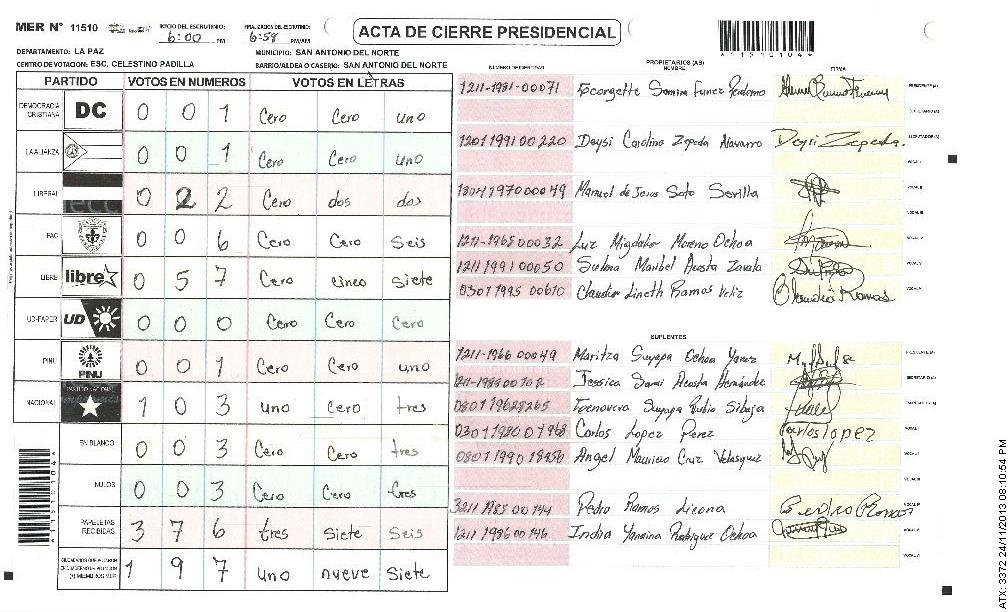 MER N° 11510
INICIO DEL ESCRUTINIO: 6:00 PM
FINALIZACION DEL ESCRUTINIO: 6:58 PM/AM
ACTA DE CIERRE PRESIDENCIAL
*A11510104*
DEPARTAMENTO: LA PAZ
MUNICIPIO: SAN ANTONIO DEL NORTE
CENTRO DE VOTACION: ESC. CELESTINO PADILLA
BARRIO/ALDEA O CASERIO: SAN ANTONIO DEL NORTE
PARTIDO VOTOS EN NUMEROS VOTOS EN LETRAS
DEMOCRACIA CRISTIANA DC 0 0 1 Cero Cero uno
LA ALIANZA 0 0 1 Cero Cero uno
LIBERAL 0 2 2 Cero dos dos
FAC 0 0 6 Cero Cero Seis
LIBRE libre 0 5 7 Cero cinco Siete
UD-FAPER UD 0 0 0 Cero Cero Cero
PINU PINU 0 0 1 Cero Cero uno
NACIONAL PARTIDO NACIONAL 1 0 3 uno Cero tres
EN BLANCO 0 0 3 Cero Cero tres
NULOS 0 0 3 Cero Cero tres
PAPELETAS RECIBIDAS 3 7 6 tres Siete Seis
1 9 7 uno nueve Siete
NUMERO DE IDENTIDAD PROPIETARIOS (AS) NOMBRE FIRMA
1211-1981-00071 Georgette Samira Funez Perdomo PRESIDENTE (A)
SECRETARIO (A)
1201199100220 Deysi Carolina Zepeda Navarro Deysi Zepeda. ESCRUTADOR (A)
VOCAL I
1804197000049 Manuel de Jesus Soto Sevilla VOCAL II
VOCAL III
1211-196500032 Luz Migdalia Moreno Ochoa VOCAL IV
1211199100050 Maribel Acosta Zavala VOCAL V
0301 1995 00610 Claudia Lineth Ramos Veliz Claudia Ramos
SUPLENTES
1211-1966 00049 Maritza Suyapa Ochoa Yanez PRESIDENTE (A)
Jessica Acosta Hernández SECRETARIO (A)
Suyapa Rubio
Carlos Lopez Perez Carlos lopez VOCAL I
Angel Mauricio Cruz Velasquez VOCAL II
VOCAL III
Pedro Ramos Licona Pedro Ramos VOCAL IV
1211 1986 00146 Indira Yamina Rodriguez Ochoa VOCAL V
VOCAL VI
*A11510104*
ATX: 3372 24/11/2013 08:10:54 PM